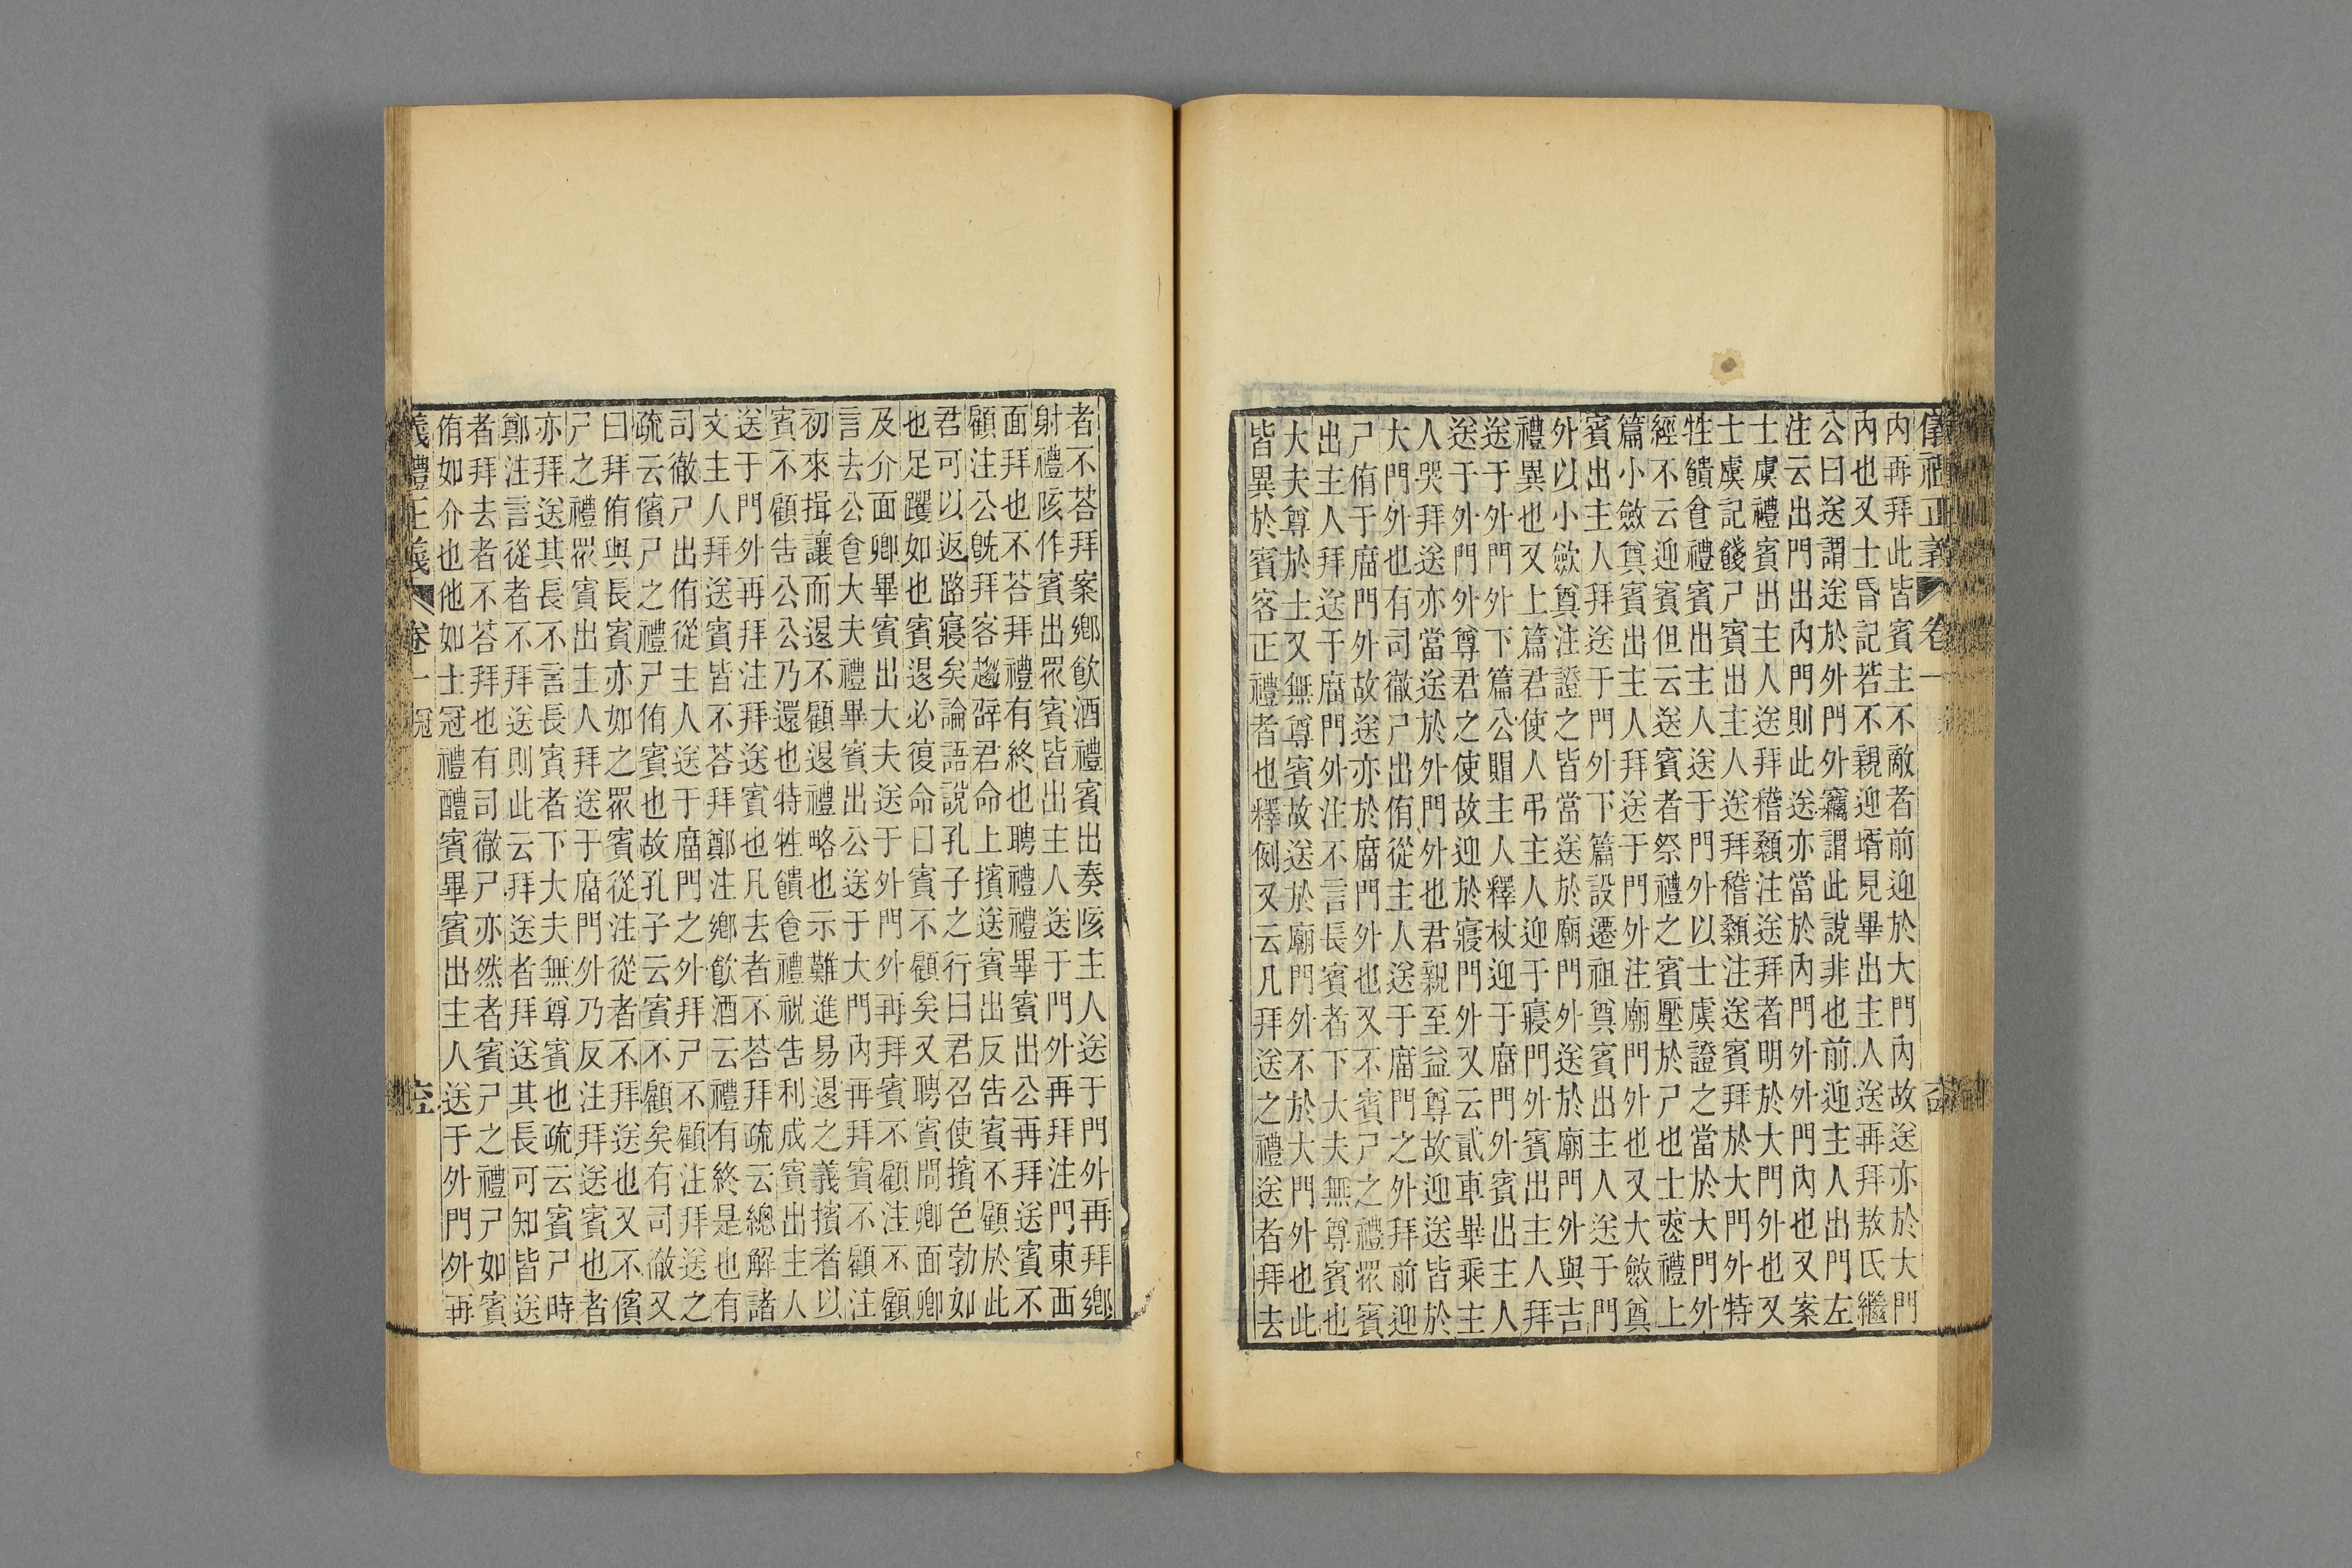 儀禮正義 卷一
內再拜此皆賓主不敵者前迎於大門內故送亦於大門
內也又士昏記若不親迎壻見畢出主人送再拜敖氏繼
公曰送謂送於外門外竊謂此說非也前迎主人出門左
注云出門出內門則此送亦當於內門外外門內也又案
士虞禮賓出主人送拜稽顙注送拜者明於大門外也又
士虞記餞尸賓出主人送拜稽顙注送賓拜於大門外特
牲饋食禮賓出主人送于門外以士虞證之當於大門外
經不云迎賓但云送賓者祭禮之賓壓於尸也士喪禮上
篇小斂奠賓出主人拜送于門外注廟門外也又大斂奠
賓出主人拜送于門外下篇設遷祖奠賓出主人送于門
外以小斂奠注證之皆當送於廟門外送於廟門外與吉
禮異也又上篇君使人弔主人迎于寢門外賓出主人拜
送于外門外下篇公賵主人釋杖迎于廟門外賓出主人
送于外門外尊君之使故迎於寢門外又云貳車畢乘主
人哭拜送亦當送於外門外也君親至益尊故迎送皆於
大門外也有司徹尸出侑從主人送于廟門之外拜前迎
尸侑于廟門外故送亦於廟門外也又不賓尸之禮眾賓
出主人拜送于廟門外注不言長賓者下大夫無尊賓也
大夫尊於士又無尊賓故送於廟門外不於大門外也此
皆異於賓客正禮者也釋例又云凡拜送之禮送者拜去
者不荅拜案鄉飲酒禮賓出奏陔主人送于門外再拜鄉
射禮陔作賓出眾賓皆出主人送于門外再拜注門東西
面拜也不荅拜禮有終也聘禮禮畢賓出公再拜送賓不
顧注公既拜客趨辟君命上擯送賓出反告賓不顧於此
君可以返路寢矣論語說孔子之行曰君召使擯色勃如
也足躩如也賓退必復命曰賓不顧矣又聘賓問卿面卿
及介面卿畢賓出大夫送于外門外再拜賓不顧注不顧
言去公食大夫禮畢賓出公送于大門內再拜賓不顧注
初來揖讓而退不顧退禮略也示難進易退之義擯者以
賓不顧告公公乃還也特牲饋食禮祝告利成賓出主人
送于門外再拜注拜送賓也凡去者不荅拜疏云總解諸
文主人拜送賓皆不荅拜鄭注鄉飲酒云禮有終是也有
司徹尸出侑從主人送于廟門之外拜尸不顧注拜送之
疏云儐尸之禮尸侑賓也故孔子云賓不顧矣有司徹又
曰拜侑與長賓亦如之眾賓從注從者不拜送也又不儐
尸之禮眾賓出主人拜送于廟門外乃反注拜送賓也者
亦拜送其長不言長賓者下大夫無尊賓也疏云賓尸時
鄭注言從者不拜送則此云拜送者拜送其長可知皆送
者拜去者不荅拜也有司徹尸亦然者賓尸之禮尸如賓
侑如介也他如士冠禮醴賓畢賓出主人送于外門外再
義禮正義 卷一 冠